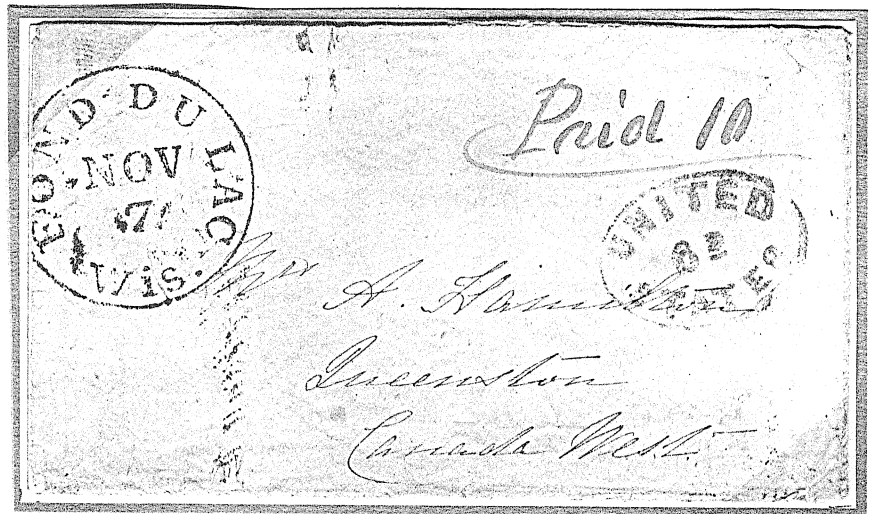 FOND DU LAC
NOV
7
Wis.
Paid 10
UNITED
STATES
Mrs A. Hamilton
Queenston
Canada West.